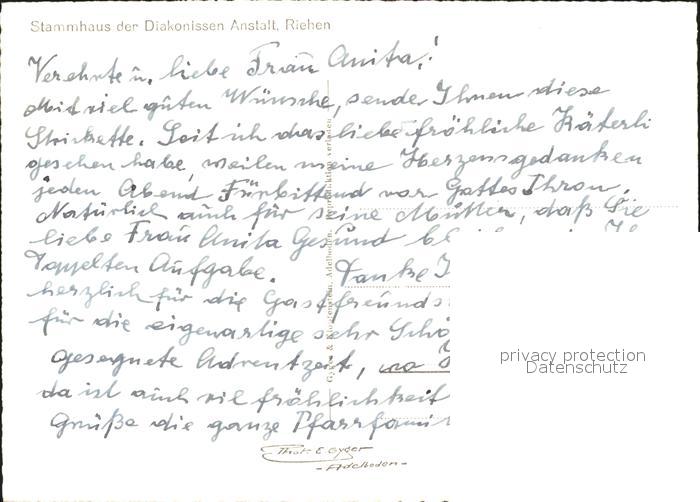 Stammhaus der Diakonissen Anstalt, Riehen
Verehrte u. liebe Frau Anita!
Mid viel guten Wünsche, sende Ihnen diese
Seit ich das liebe fröhliche Käterli
gesehen habe, weilen meine Herzensgedanken
jeden Abend Fürbittend vor Gottes Thron.
Natürlich auch für seine Mutter, daß Sie
liebe Frau Anita Gesund
Toppelten Aufgabe. Danke
herzlich für die Gastfreunds
für die eigenartige sehr Schö
gesegnete Adventzeit, wo
da ist auch vil fröhlichkeit
Grüße die ganze Pfarrfami
Gyger & Klopfenstein, Adelboden.
Phot. E. Gyger
- Adelboden -
privacy protection
Datenschutz